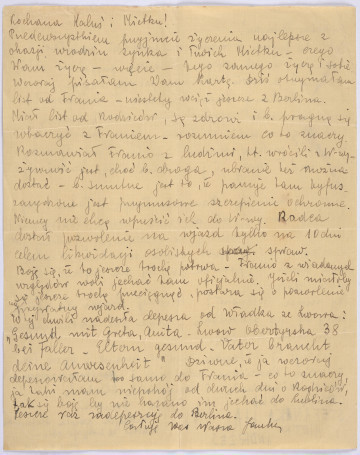 Kochana Haluś i Mietku!
Przedewszystkiem przyjmijcie życzenia najlepsze z
okazji urodzin synka i Twoich Mietku – czego
Wam życzę – wiecie – tego samego życzę i sobie
Wczoraj pisałam Wam kartę. Dziś otrzymałam
list od Frania – niestety wciąż jeszcze z Berlina.
Miał list od Rodziców, są zdrowi i b. pragną się
zobaczyć z Franiem – rozumiem co to znaczy
Rozmawiał Franio z ludźmi, kt. wrócili z W-wy –
żywność jest, choć b. droga, ubranie też można
dostać – b. smutne jest to, że panuje tam tyfus
zarządzone jest przymusowe szczepienie ochronne.
Niemcy nie chcą wpuścić ich do W-wy. Radca
dostał pozwolenie na wjazd tylko na 10 dni
celem likwidacji osobistych spraw.
Boję się, że to jeszcze trochę potrwa – Franio z wiadomych
względów woli jechać tam oficjalnie. Jeśli miałoby
się jeszcze trochę przeciągnąć, postara się o pozwolenie
prywatny wyjazd.
W tej chwili nadeszła depesza od Władka ze Lwowa:
"Gesund mit Greta, Anita – Lwow Obertyńska 38
bei Faller – Eltern gesund – Vater braucht
deine Anwesenheit" Dziwne, że ja wczoraj
depeszowałam to samo do Frania – co to znaczy,
ja taki mam niepokój od dwuch dni o Rodziców,
tak się boję by nie kazano im jechać do Lublina.
Jeszcze raz zadepeszuję do Berlina.
Całuję Was Wasza